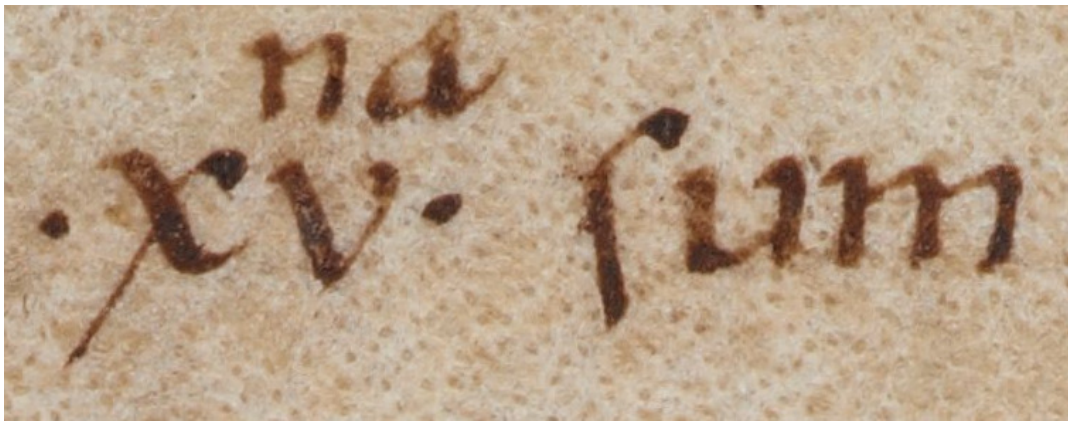 na
·xv· ſum